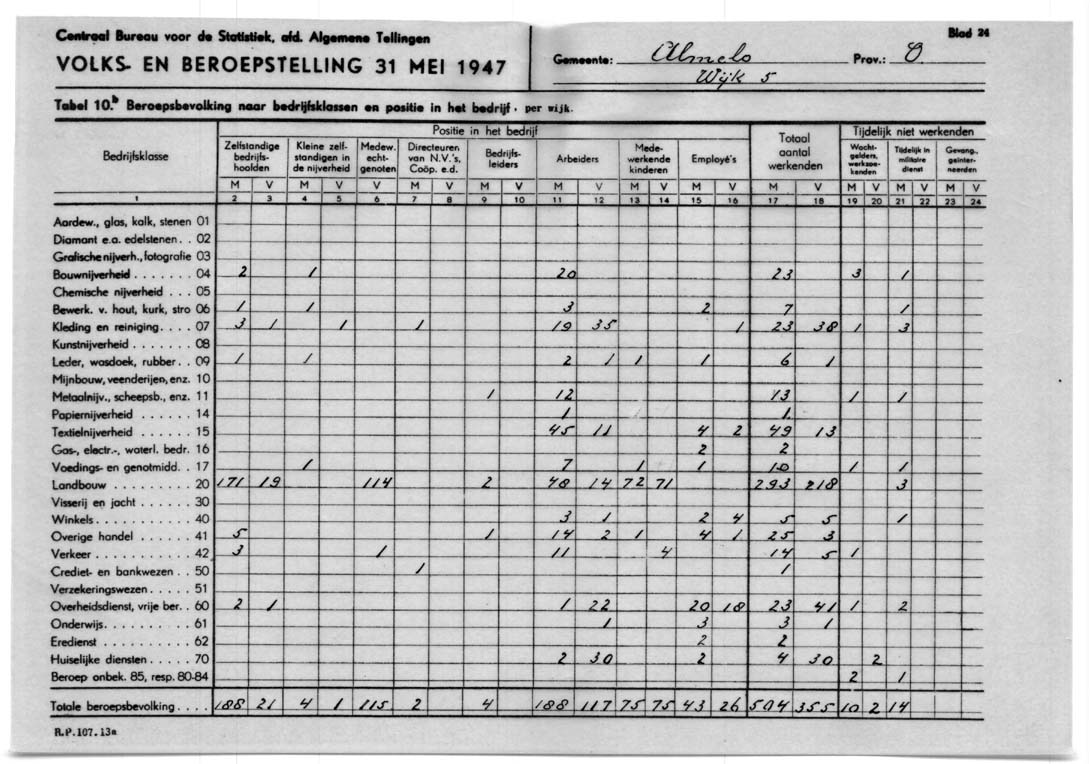 Centraal Bureau voor de Statistiek, afd. Algemene Tellingen
Blad 24
VOLKS- EN BEROEPSTELLING 31 MEI 1947
Gemeente: Almelo Prov.: O.
Wijk 5
Tabel 10.b Beroepsbevolking naar bedrijfsklassen en positie in het bedrijf, per wijk.
Bedrijfsklasse
Positie in het bedrijf
Totaal aantal werkenden
Tijdelijk niet werkenden
Zelfstandige bedrijfs-hoofden
Kleine zelf-standigen in de nijverheid
Medew. echt-genoten
Directeuren van N.V.'s, Coöp. e.d.
Bedrijfs-leiders
Arbeiders
Mede-werkende kinderen
Employé's
Wacht-gelders, werkzoe-kenden
Tijdelijk in militaire dienst
Gevang., geïnter-neerden
M V M V V M V M V M V M V M V M V M V M V M V
1 2 3 4 5 6 7 8 9 10 11 12 13 14 15 16 17 18 19 20 21 22 23 24
Aardew., glas, kalk, stenen 01
Diamant e.a. edelstenen . . 02
Grafische nijverh., fotografie 03
Bouwnijverheid . . . . . . . 04 2 1 20 23 3 1
Chemische nijverheid . . . 05
Bewerk. v. hout, kurk, stro 06 1 1 3 2 7 1
Kleding en reiniging. . . . 07 3 1 1 1 19 35 1 23 38 1 3
Kunstnijverheid . . . . . . 08
Leder, wasdoek, rubber . . 09 1 1 2 1 1 1 6 1
Mijnbouw, veenderijen, enz. 10
Metaalnijv., scheepsb., enz. 11 1 12 13 1 1
Papiernijverheid . . . . . . 14 1 1
Textielnijverheid . . . . . . 15 45 11 4 2 49 13
Gas-, electr.-, waterl. bedr. 16 2 2
Voedings- en genotmidd. . 17 1 7 1 1 10 1 1
Landbouw . . . . . . . . . 20 171 19 114 2 48 14 72 71 293 218 3
Visserij en jacht . . . . . . 30
Winkels . . . . . . . . . . . 40 3 1 2 4 5 5 1
Overige handel . . . . . . 41 5 1 14 2 1 4 1 25 3
Verkeer . . . . . . . . . . . 42 3 1 11 4 14 5 1
Crediet- en bankwezen . . 50 1 1
Verzekeringswezen . . . . . 51
Overheidsdienst, vrije ber. . 60 2 1 1 22 20 18 23 41 1 2
Onderwijs. . . . . . . . . . 61 1 3 3 1
Eredienst . . . . . . . . . 62 2 2
Huiselijke diensten . . . . . 70 2 30 2 4 30 2
Beroep onbek. 85, resp. 80-84 2 1
Totale beroepsbevolking . . . . 188 21 4 1 115 2 4 188 117 75 75 43 26 504 355 10 2 14
R.P.107.13a